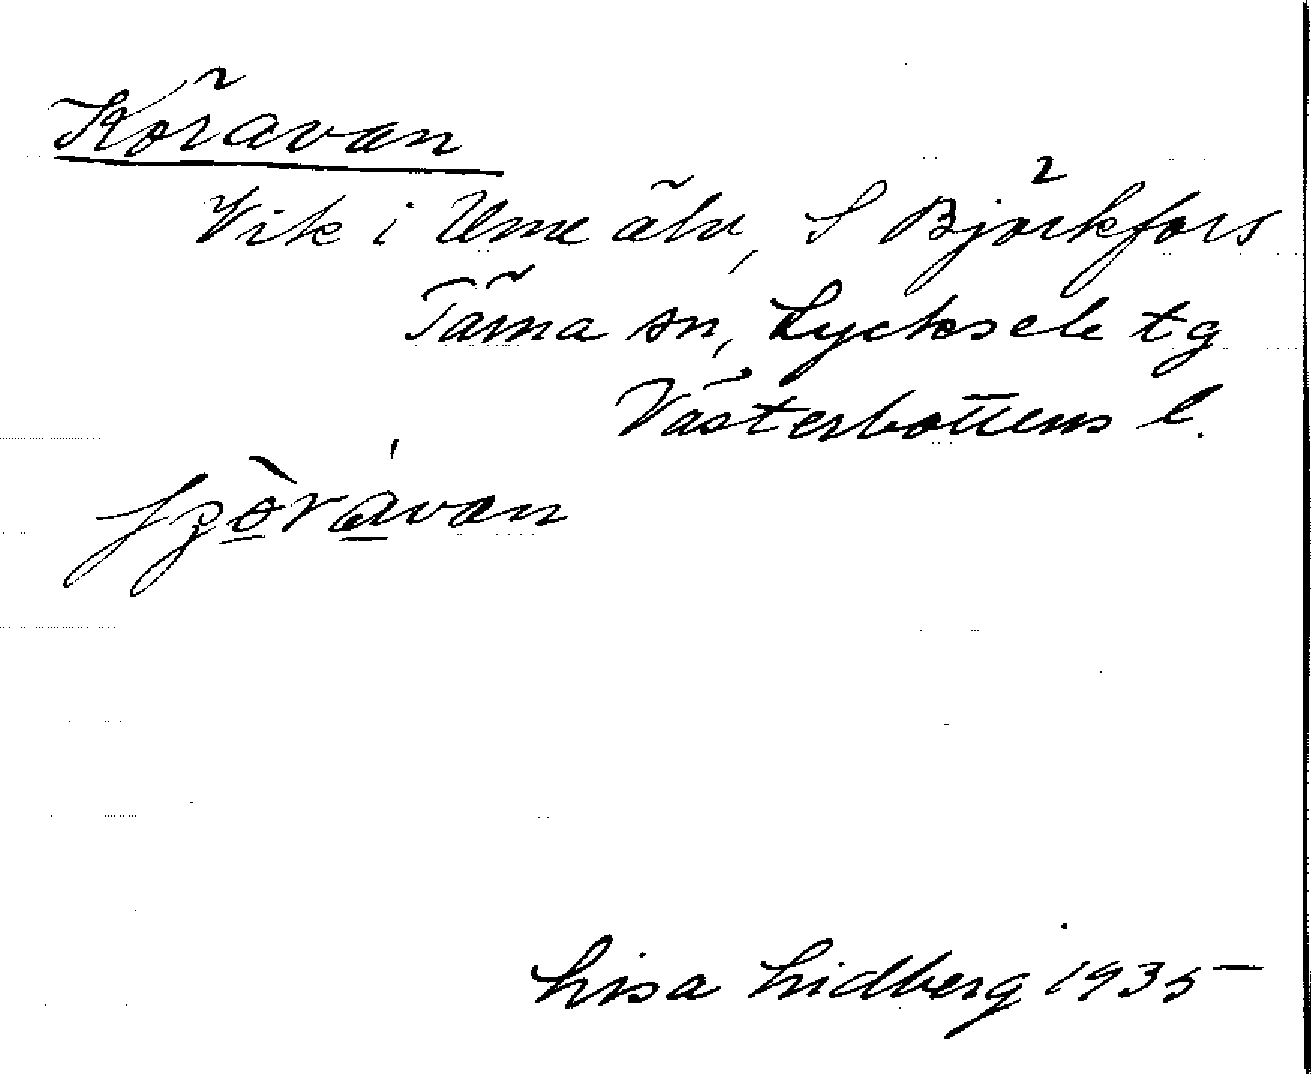 Köravan
Vik i Ume älv, S Björkfors
Tärna sn, Lycksele tg
Västerbottens l.
Lisa Lidberg 1935